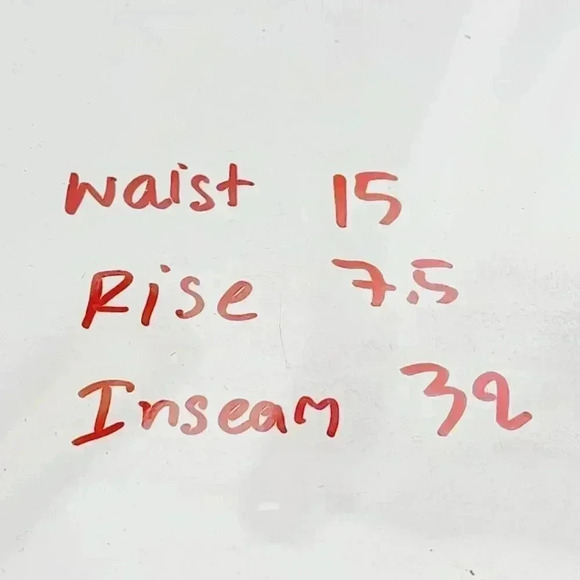 Waist 15
Rise 7.5
Inseam 32